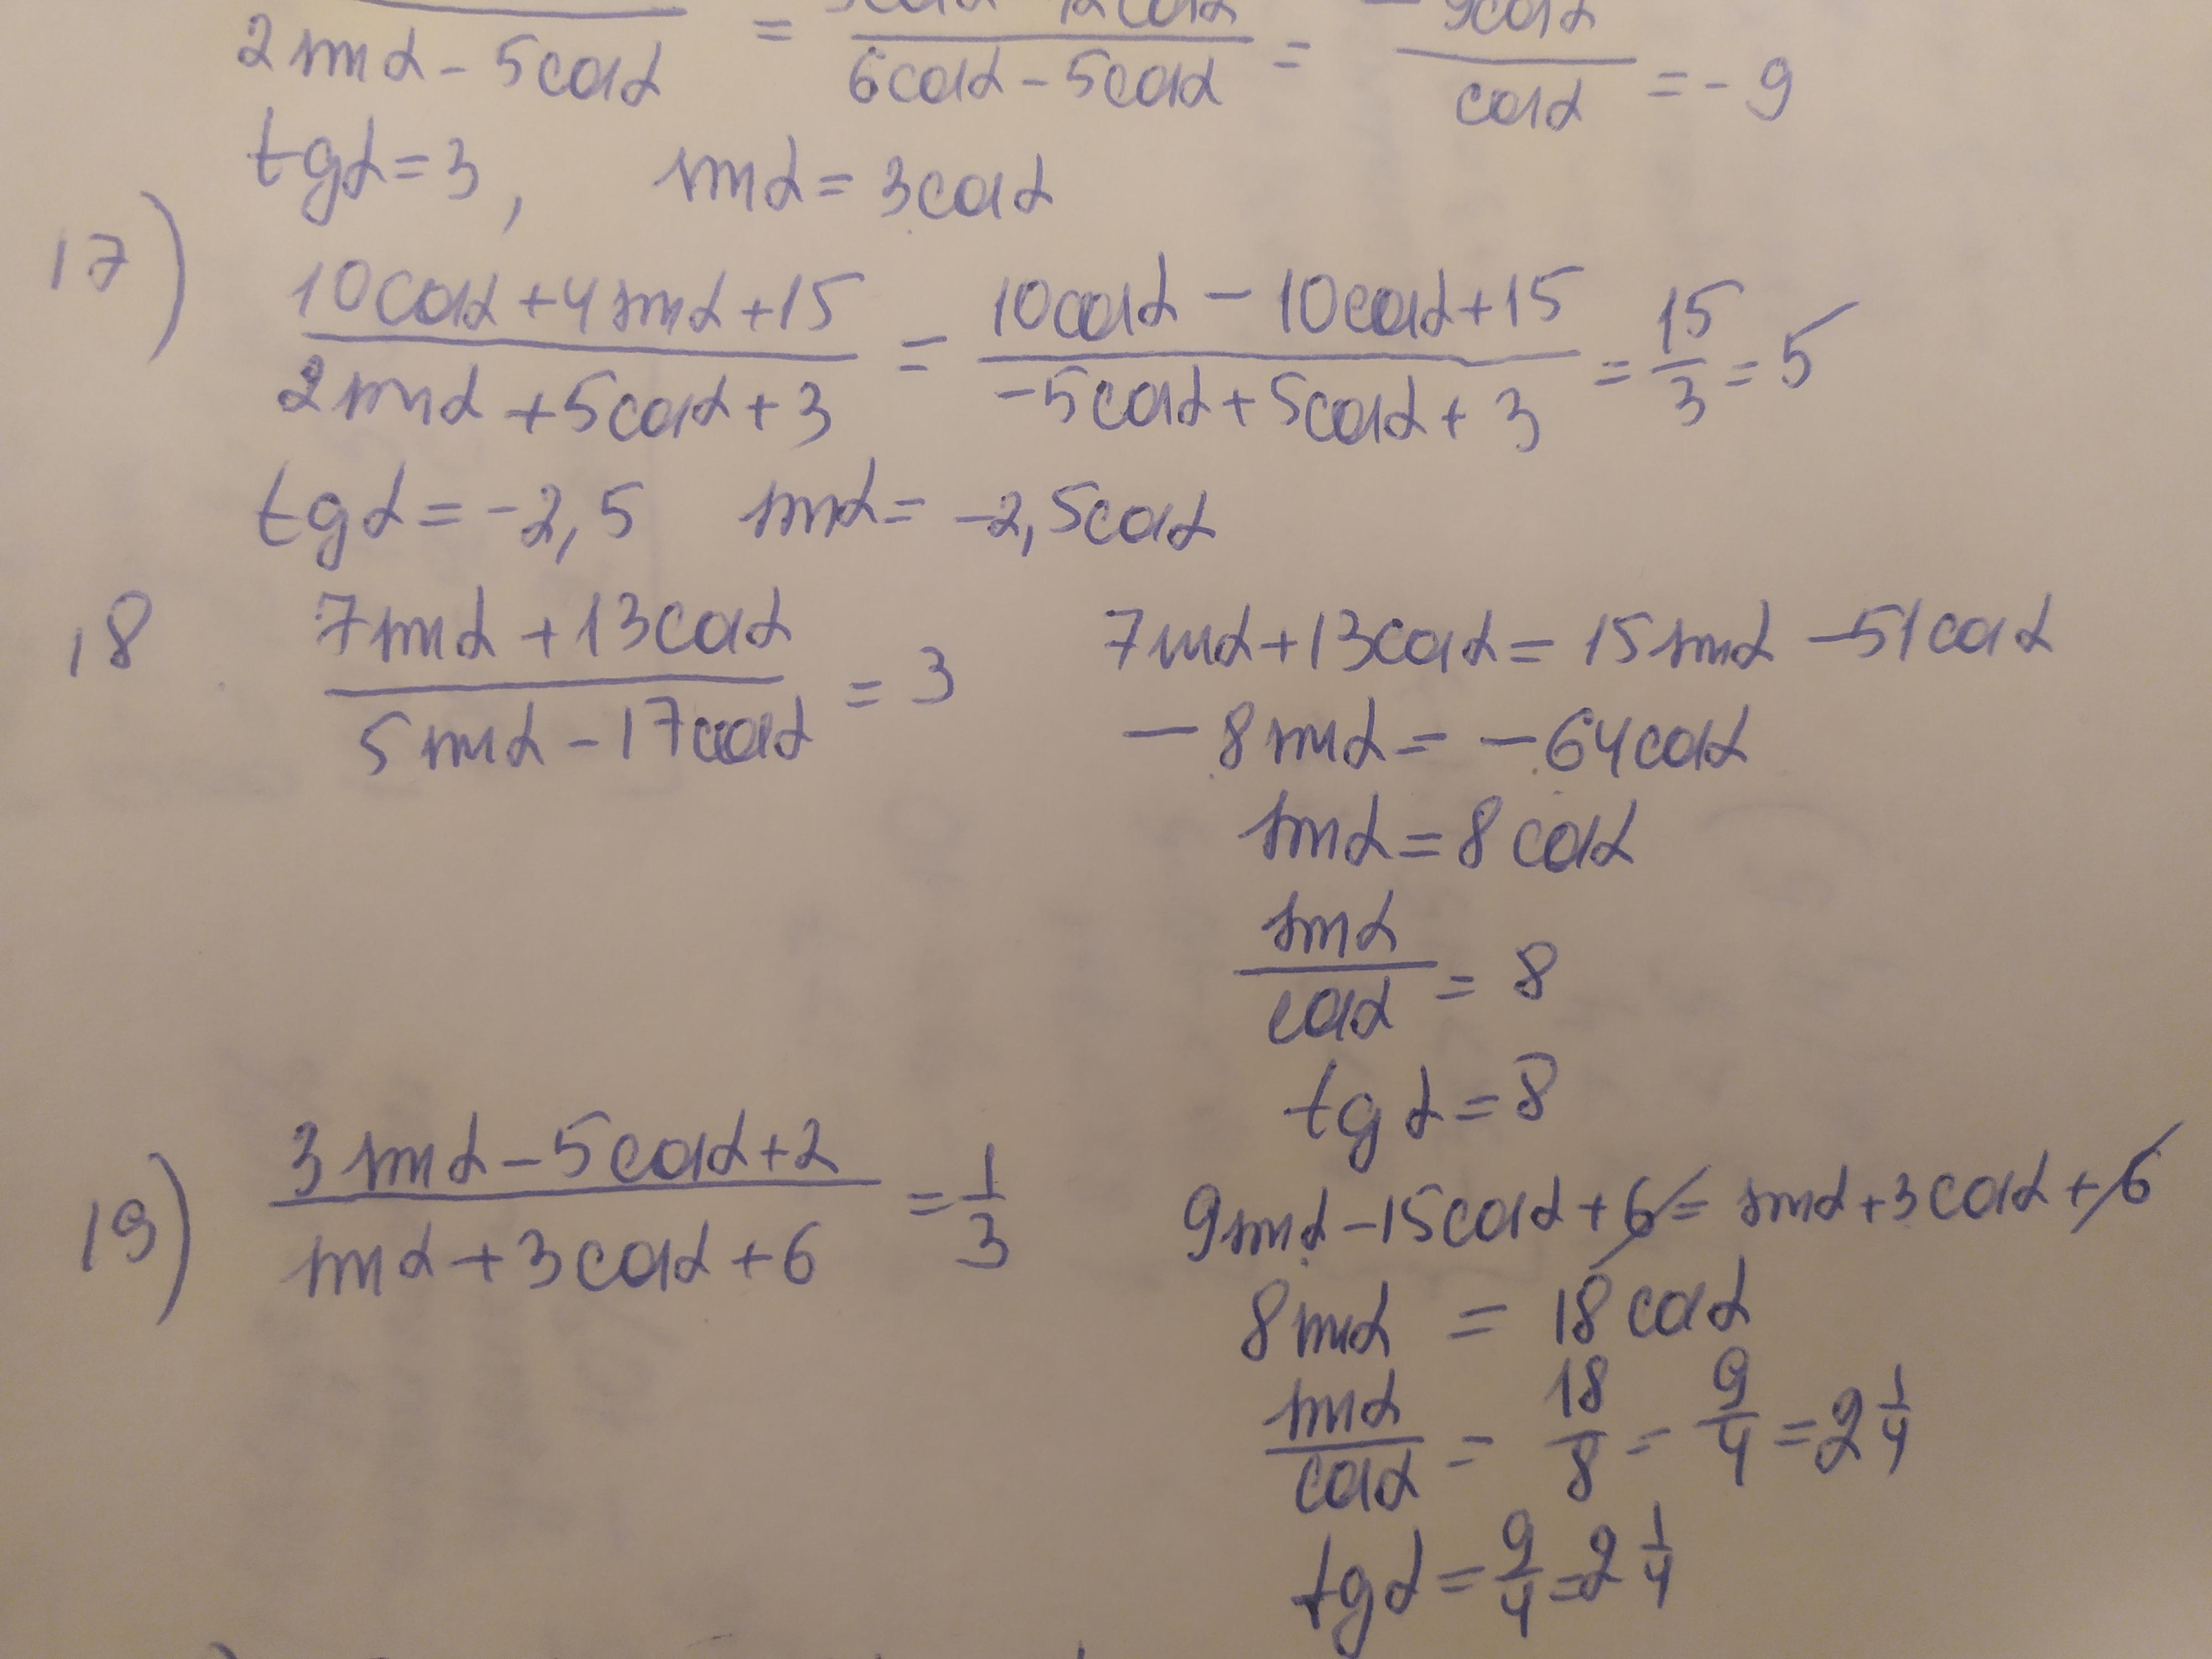 2sinα - 5cosα = 6cosα - 5cosα = cosα = - 9
tgα = 3, sinα = 3cosα
17) (10cosα + 4sinα + 15)/(2sinα + 5cosα + 3) = (10cosα - 10cosα + 15)/(-5cosα + 5cosα + 3) = 15/3 = 5
tgα = -2,5 sinα = -2,5cosα
18 (7sinα + 13cosα)/(5sinα - 17cosα) = 3
7sinα + 13cosα = 15sinα - 51cosα
- 8sinα = - 64cosα
sinα = 8cosα
sinα/cosα = 8
tgα = 8
19) (3sinα - 5cosα + 2)/(sinα + 3cosα + 6) = 1/3
9sinα - 15cosα + 6 = sinα + 3cosα + 6
8sinα = 18cosα
sinα/cosα = 18/8 = 9/4 = 2 1/4
tgα = 9/4 = 2 1/4